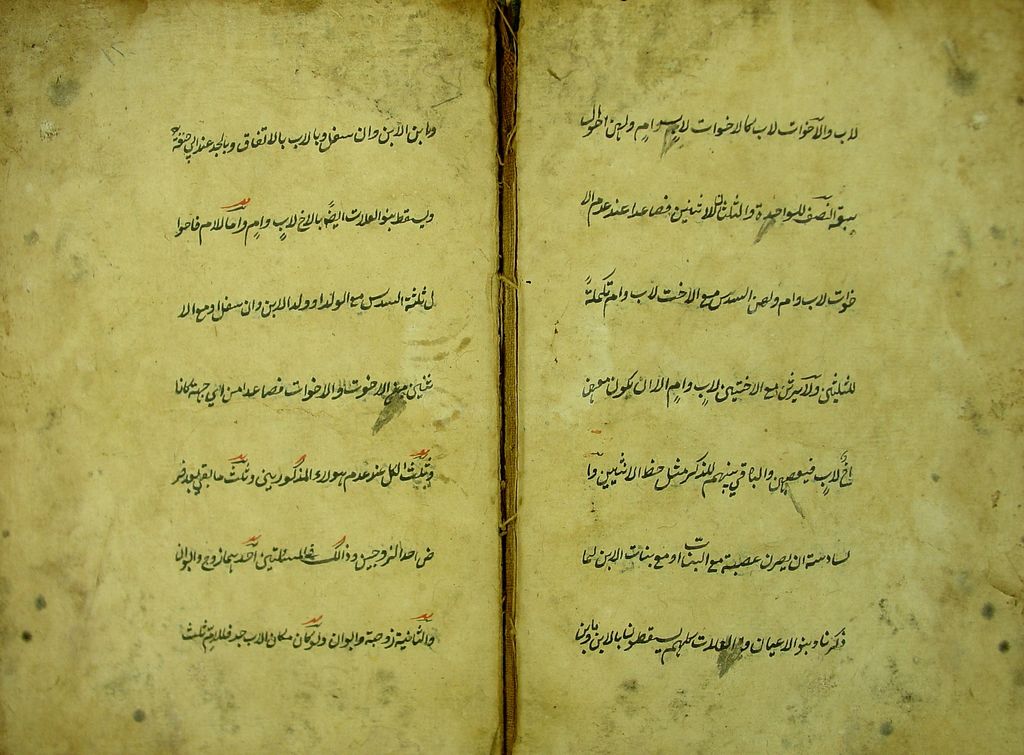 لاب والاخوات لاب كالاخوات لاب وام ولهن احوال
سبع النصف للواحدة والثلثان للاثنين فصاعدا عند عدم الا
خوات لاب وام ولهن السدس مع الاخت لاب وام تكملة
للثلثين ولا يرثن مع الاختين لاب وام الا ان يكون معهن
اخ لاب فيعصبهن والباقي بينهم للذكر مثل حظ الانثيين وا
لسادسة ان يصرن عصبة مع البنات او مع بنات الابن لما
ذكرنا وبنو الاعيان والعلات كلهم يسقطون بالابن
وابن الابن وان سفل وبالاب بالاتفاق وبالجد عند ابي حنيفة
ويسقط بنو العلات ايضا بالاخ لاب وام واما للام فاحوا
ل ثلثة السدس مع الولد او ولد الابن وان سفل او مع الا
ثنين من الاخوت والاخوات فصاعدا من اي جهة كانا
وثلث الكل عند عدم هولاء المذكورين وثلث ما بقي بعد فر
ض احد الزوجين وذلك في المسئلتين احدهما زوج وابوان
والثانية زوجة وابوان ولو كان مكان الاب جد فللام ثلث